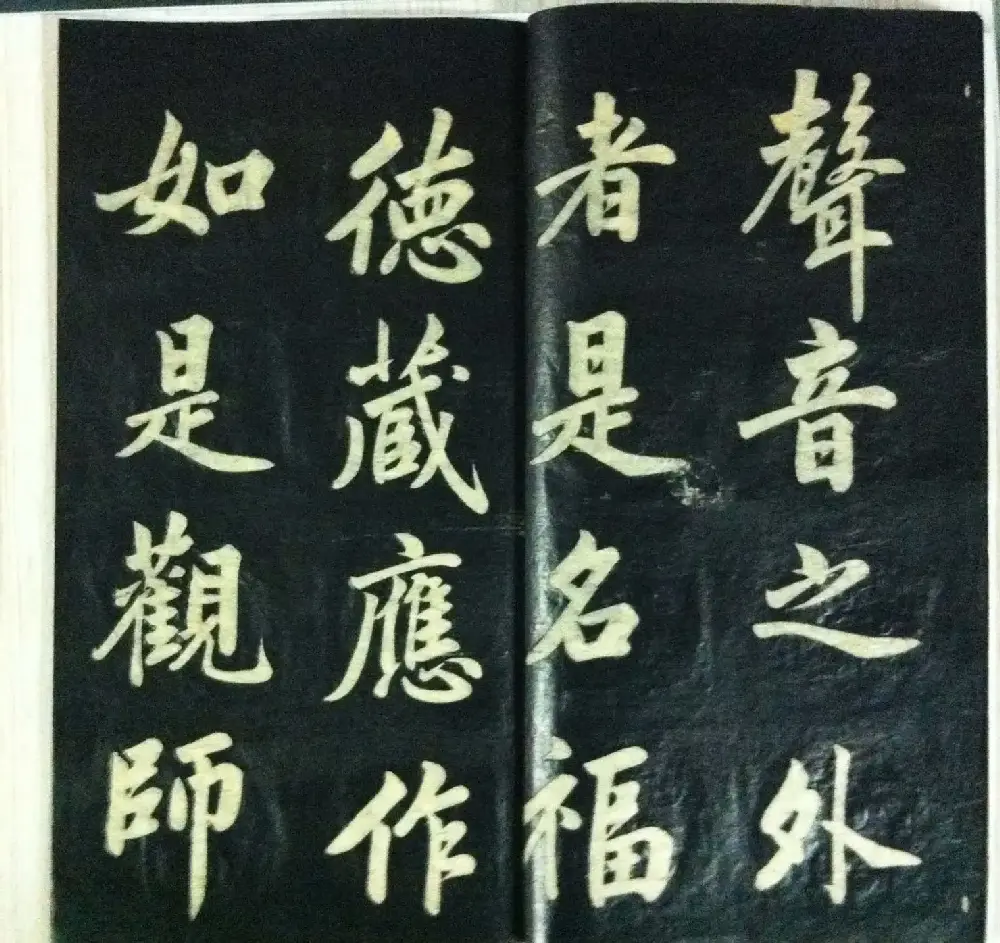 聲音之外
者是名福
德藏應作
如是觀師